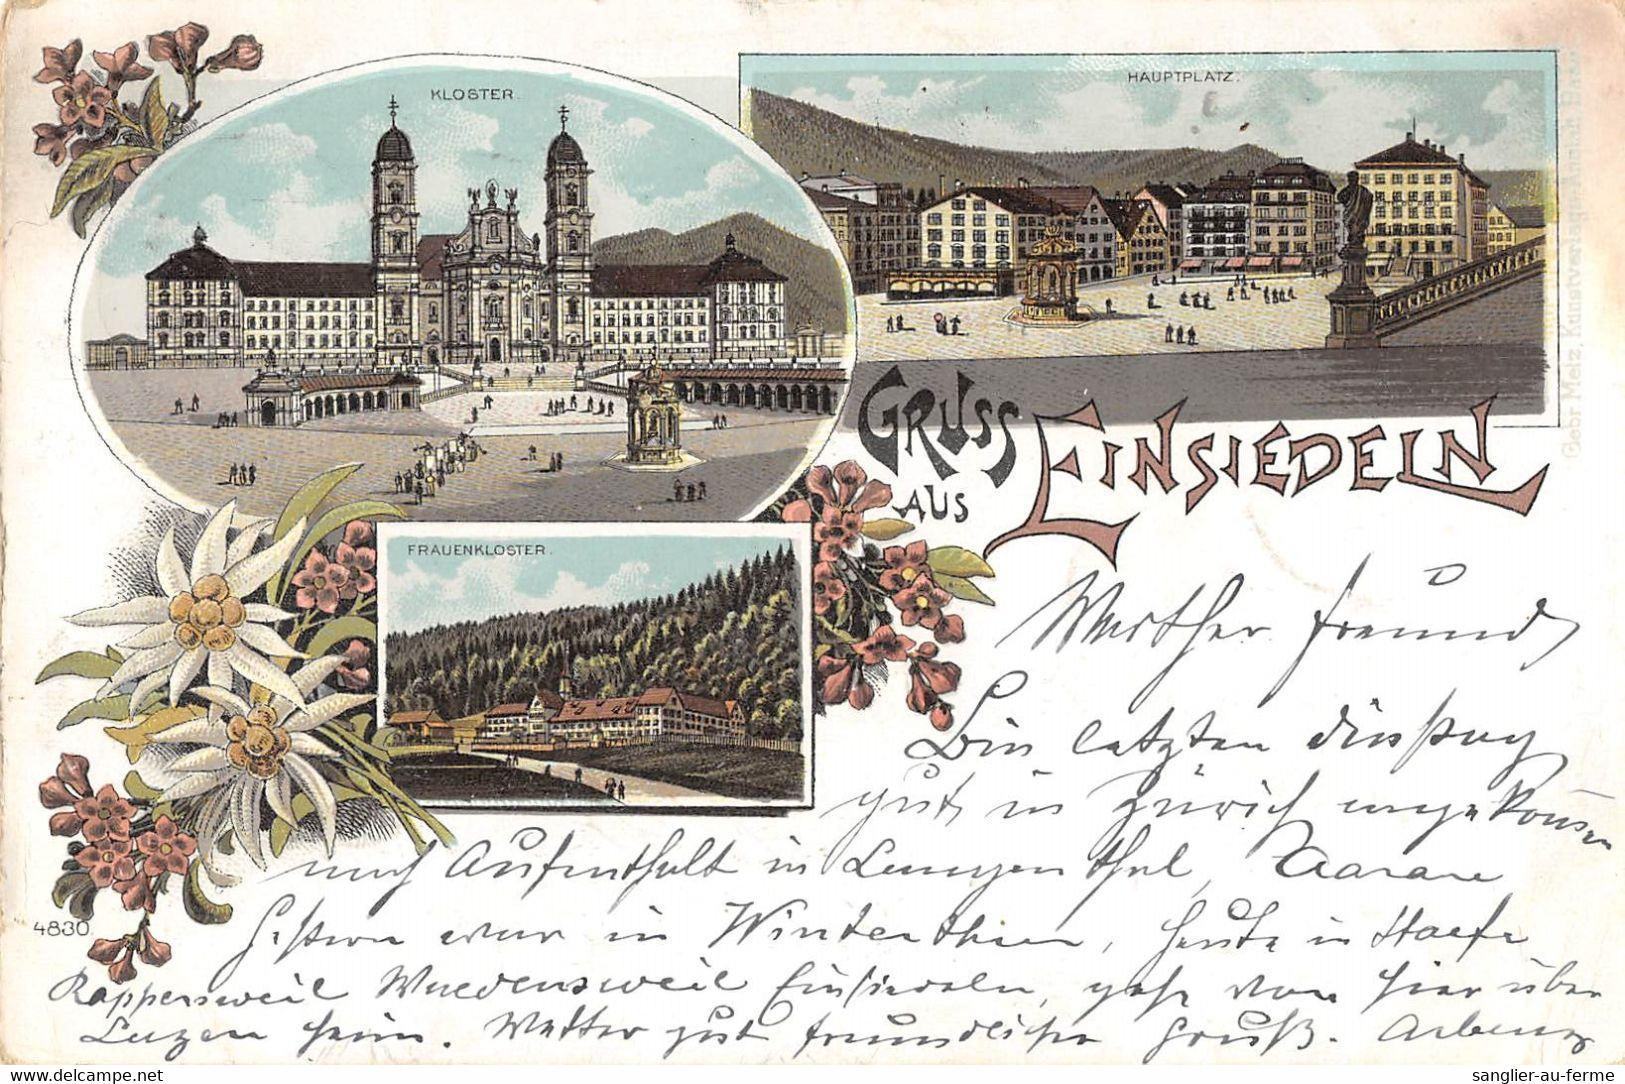 KLOSTER.
HAUPTPLATZ.
GRUSS
AUS
EINSIEDELN
FRAUENKLOSTER.
Gebr. Metz, Kunstverlagsanstalt
Werther Freund
Bin letzten dinstag
gut in Zürich angekommen
nach Aufenthalt in Langenthal, Aarau
Gestern war in Winterthur, heute in Staefa
Rappersweil Waedensweil Einsiedeln, gehe von hier über
Luzern heim. Wetter gut freundlichen Gruß.
4830.
delcampe.net
sanglier-au-ferme